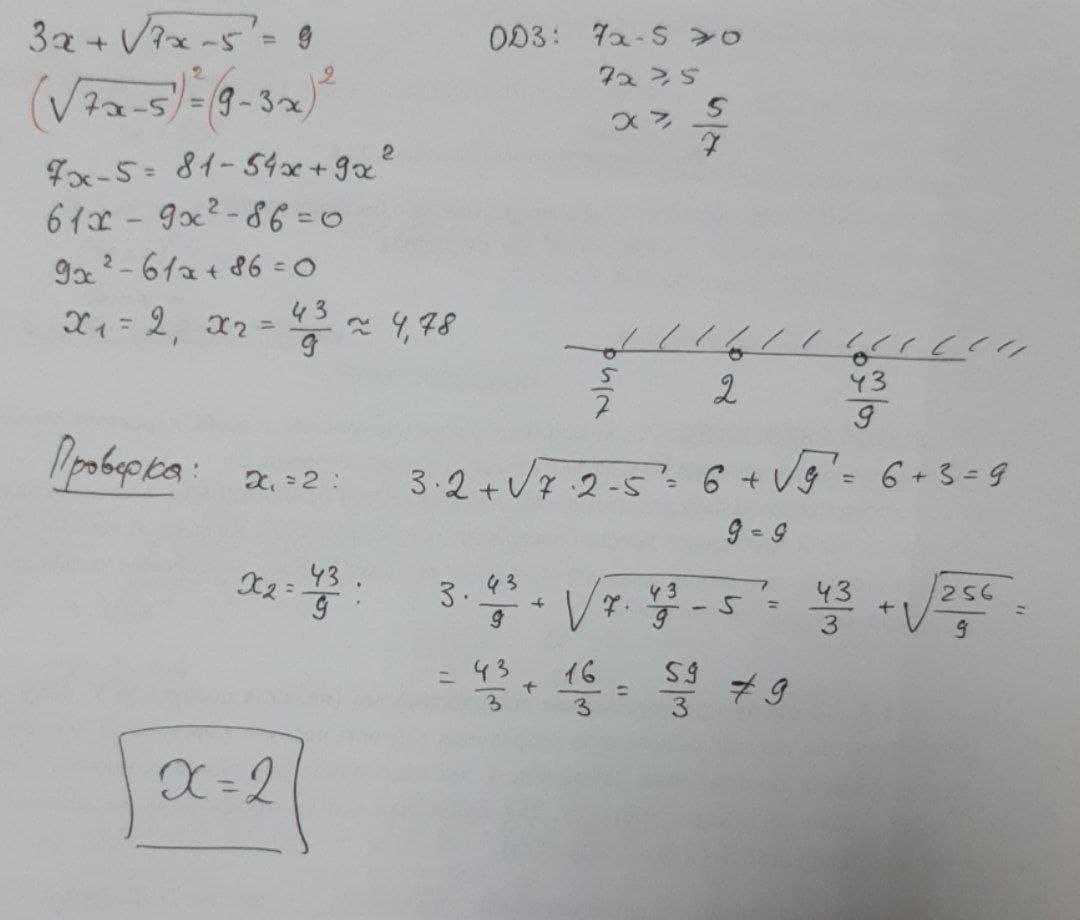 3x + √(7x - 5) = 9
(√(7x - 5))² = (9 - 3x)²
7x - 5 = 81 - 54x + 9x²
61x - 9x² - 86 = 0
9x² - 61x + 86 = 0
x₁ = 2, x₂ = 43/9 ≈ 4,78
ОДЗ: 7x - 5 ⩾ 0
7x ⩾ 5
x ⩾ 5/7
5/7 2 43/9
Проверка: x₁ = 2: 3·2 + √(7·2 - 5) = 6 + √9 = 6 + 3 = 9
9 = 9
x₂ = 43/9: 3·43/9 + √(7·43/9 - 5) = 43/3 + √(256/9) =
= 43/3 + 16/3 = 59/3 ≠ 9
x = 2